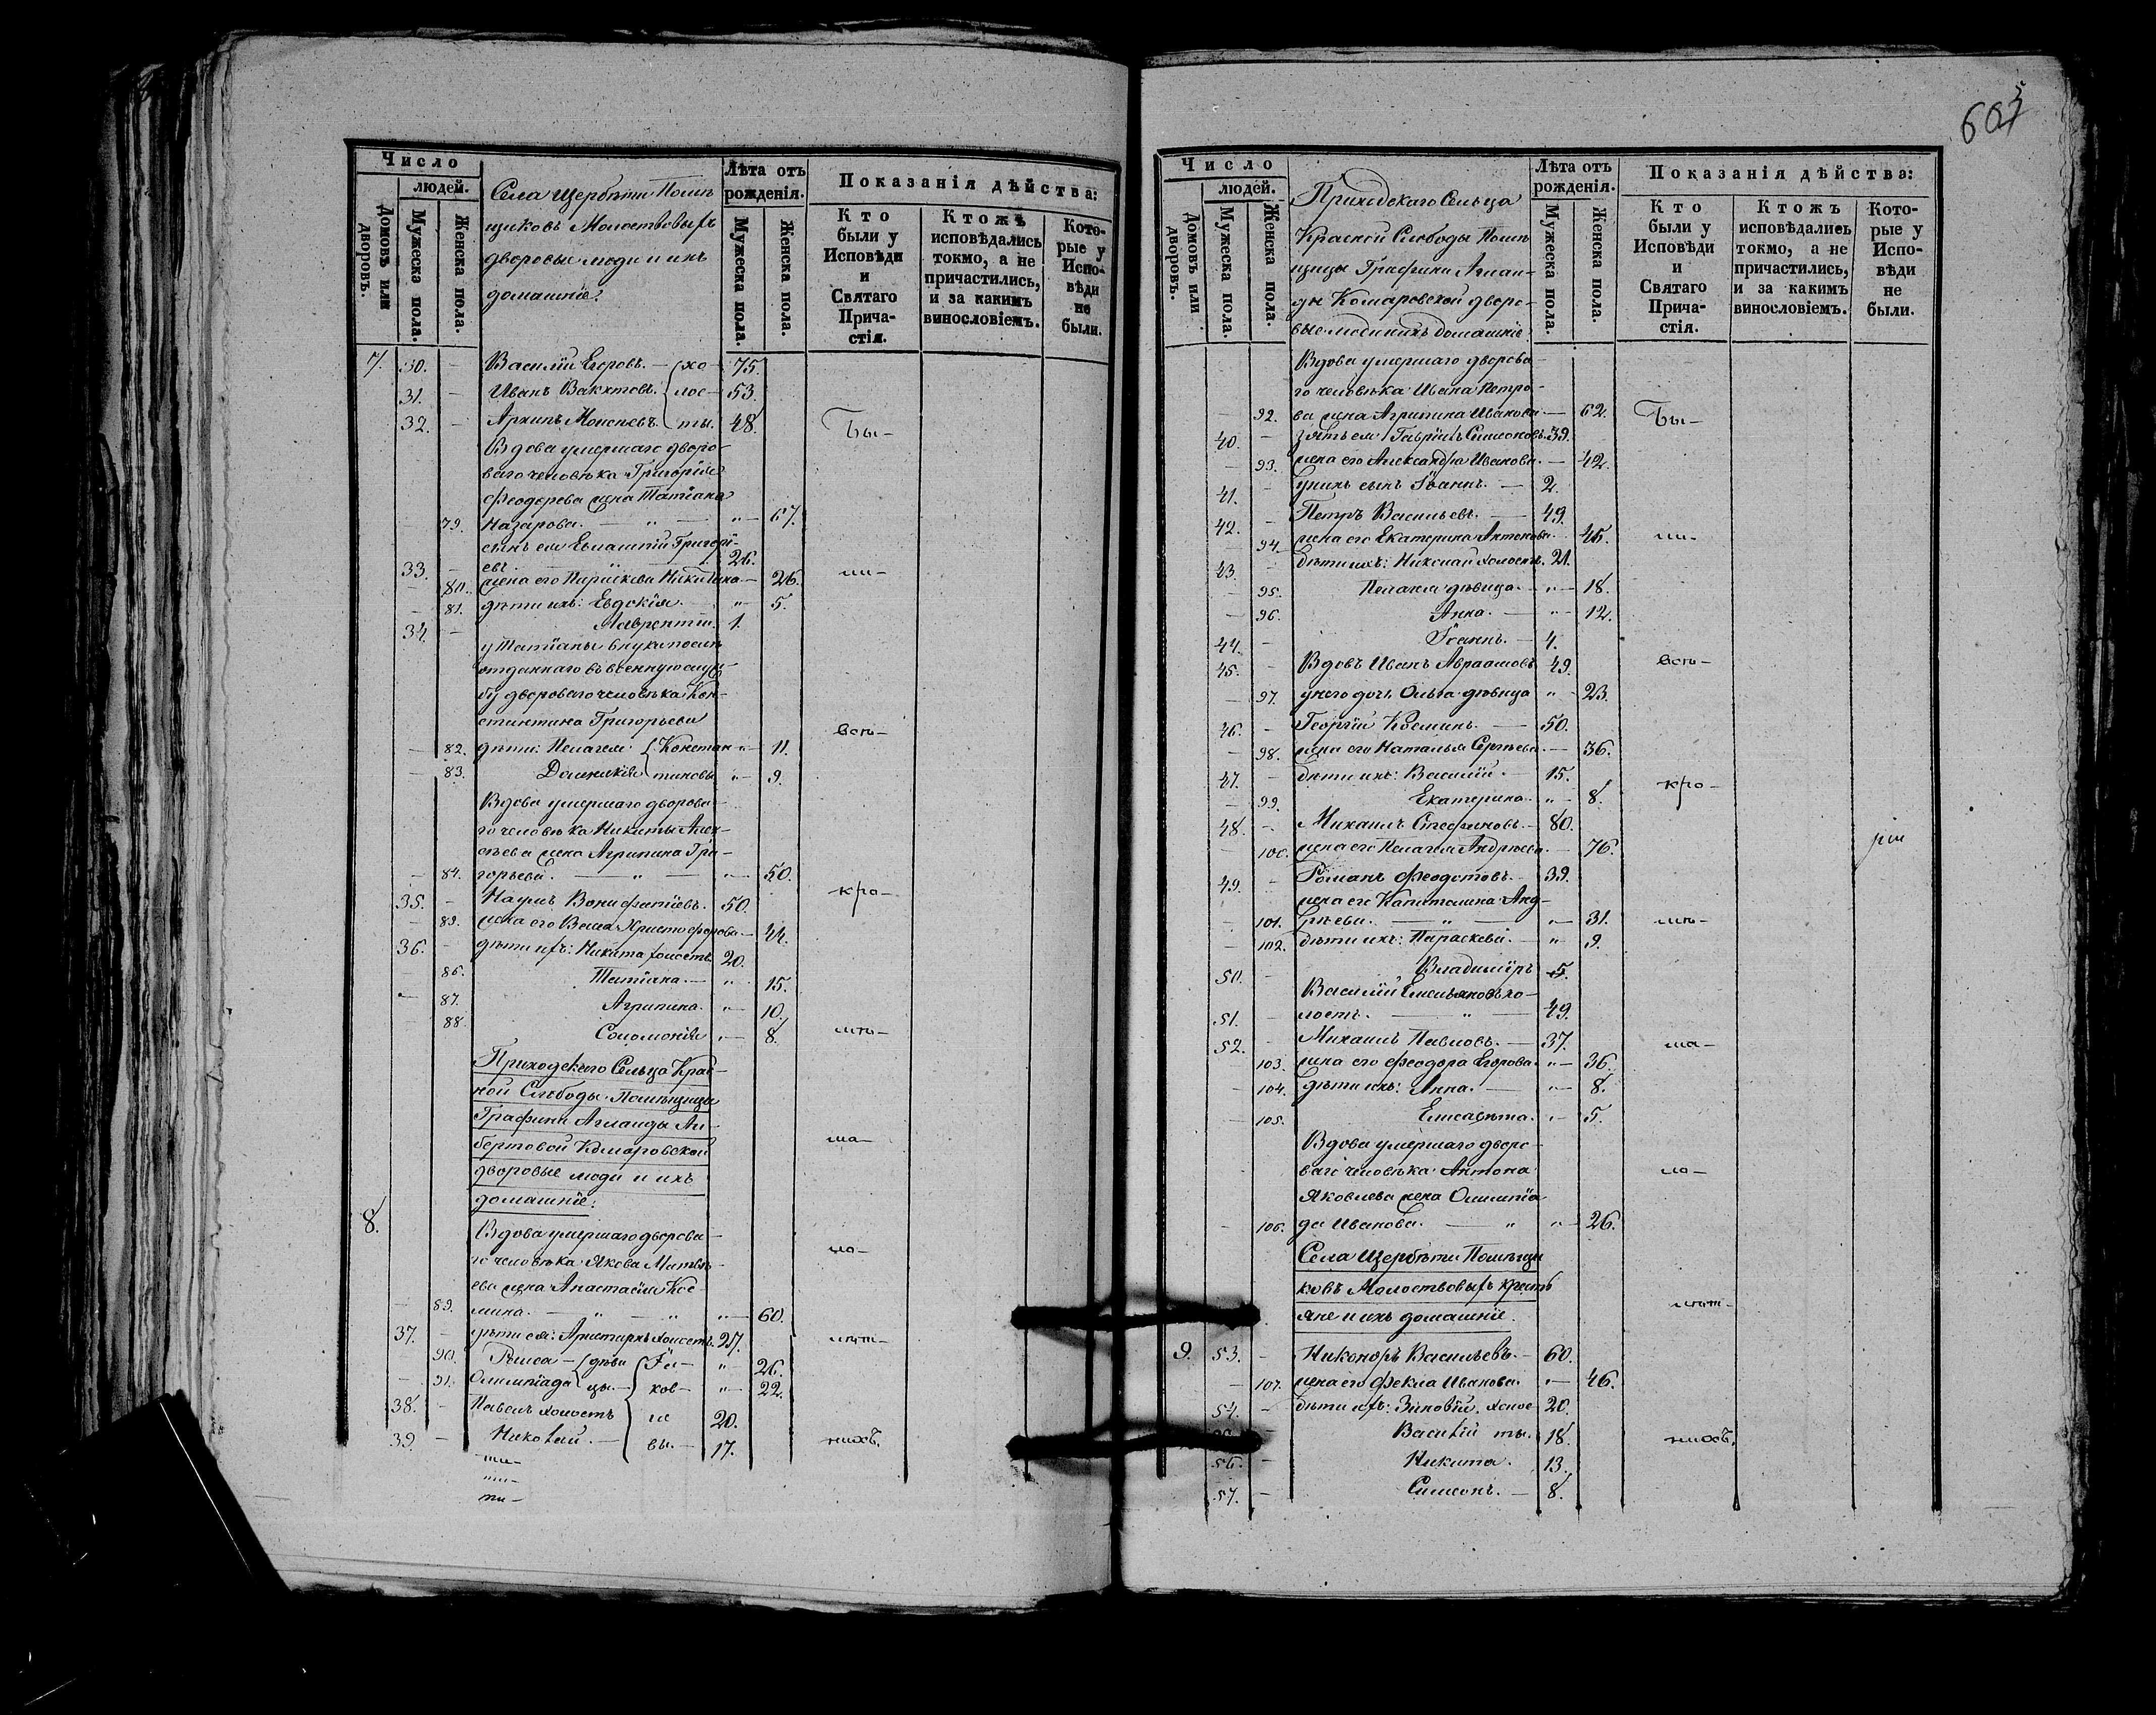 665
Число
людей.
Домовъ или дворовъ.
Мужеска пола.
Женска пола.
Села Щербѣти Помѣ
щиковъ Молоствовыхъ
дворовые люди и ихъ
домашніе:
Лѣта отъ рожденія.
Мужеска пола.
Женска пола.
Показанія дѣйства:
Кто были у Исповѣди и Святаго Прича-стія.
Ктожъ исповѣдались токмо, а не причастились, и за какимъ винословіемъ.
Кото-рые у Испо-вѣди не были.
7. 30. – Василій Егоровъ. – хо- 75.
31. – Иванъ лос- 53.
32. – Архипъ Моисеевъ. ты. 48. Бы-
Вдова умершаго дворо-
ваго человѣка Григорія
Феодорова жена Татіана
– 79. Назарова. – " – " – 67.
сынъ ея Евлампій Григорі-
33. – евъ. – " – 26.
– 80. жена его Параскева Никитина – 26. ли-
– 81. дѣти ихъ: Евдокія. " – 5.
34. – Лаврентій. 1.
у Татіаны внуки послѣ
отданнаго въ военную служ-
бу двороваго человѣка Кон-
стантина Григорьева
всѣ-
– 82. дѣти: Пелагея. Констан- " – 11.
– 83. Домникія тиновы " – 9.
Вдова умершаго дворова-
го человѣка Никиты Алек-
сѣева жена Агрипина Гри-
– 84. горьева. – " – " – 50.
35. – Наумъ Вонифатіевъ. 50. кро-
– 85. жена его Васса Христофорова – 44.
36. – дѣти ихъ: Никита холостъ 20.
– 86. Татіана. – " 15.
– 87. Агрипина. " – 10.
– 88. Соломонія " – 8. мѣ-
Приходскаго Сельца Крас-
ной Слободы Помѣщицы
Графини Аглаиды Ал-
бертовой Комаровской
ша-
дворовые люди и ихъ
домашніе:
8. Вдова умершаго дворова-
го человѣка Якова Матвѣ-
ло-
ева жена Анастасія Кос-
– 89. мина. – " – " " – 60.
37. – дѣти ея: Аристархъ холостъ. 27. лѣт-
– 90. Раиса – дѣви Яі- " 26.
– 91. Олимпіада цы. – ков- " – 22.
38. – Павелъ холостъ ле 20.
39. – Николай. – вы. – 17. нихъ.
Число
людей.
Домовъ или дворовъ.
Мужеска пола.
Женска пола.
Приходскаго Сельца
Красной Слободы Помѣ
щицы Графини Аглаи-
ды Комаровской дворо-
вые люди и ихъ домашніе
Лѣта отъ рожденія.
Мужеска пола.
Женска пола.
Показанія дѣйства:
Кто были у Исповѣди и Святаго Прича-стія.
Ктожъ исповѣдались токмо, а не причастились, и за какимъ винословіемъ.
Кото-рые у Испо-вѣди не были.
Вдова умершаго дворова-
го человѣка Ивана Петро-
– 92. ва жена Агрипина Иванова – 62. Бы-
40. – зять ея Гавріилъ Симеоновъ. 39.
– 93. жена его Александра Иванова. – 42.
41. – у нихъ сынъ Іоаннъ. – 2.
42. – Петръ Васильевъ. – 49.
– 94. жена его Екатерина Антонова. 45. ли-
43. – дѣти ихъ: Николай холостъ. 21.
– 95. Пелагея дѣвица. – " – 18.
– 96. Анна. – " – 12.
44. – Іоаннъ. – 4.
45. – Вдовъ Иванъ Авраамовъ 49. всѣ-
– 97. у него дочь Ольга дѣвица " – 23.
46. – Георгій Косминъ. – 50.
– 98. жена его Наталья Сергѣева. – 36.
47. – дѣти ихъ: Василій. – 15. кро-
– 99. Екатерина. " – 8.
48. – Михаилъ Стефановъ. – 80.
– 100. жена его Пелагея Андреева. – 76.
49. – Романъ Феодотовъ. – 39.
жена его Капитолина Анд-
– 101. рѣева. – " – " – 31. мѣ-
– 102. дѣти ихъ: Параскева. – " 9.
50. – Владиміръ 5.
Василій Емельяновъ хо-
51. – лостъ. – " – 49.
52. – Михаилъ Павловъ. – 37. ша-
– 103. жена его Феодора Егорова. " – 36.
– 104. дѣти ихъ: Анна. – " – 8.
– 105. Елисавета. " – 5.
Вдова умершаго дворо-
ваго человѣка Антона
ло-
Яковлева жена Олимпіа
– 106. да Иванова. – " " – 26.
Села Щербѣти Помѣщи
ковъ Молоствовыхъ кресть
лѣт-
яне и ихъ домашніе.
9. 53. – Никоноръ Васильевъ. – 60.
– 107. жена его Фекла Иванова. " – 46.
54. – дѣти ихъ: Зиновій. холос- 20.
Василій ты. 18. нихъ.
56. – Никита. 13.
57. – Симеонъ. – 8.